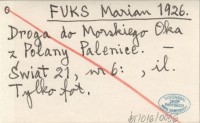 FUKS Marian 1926.
Droga do Morskiego Oka
z Polany Palenice. –
Świat 21, nr 6: , il.
Tylko fot.